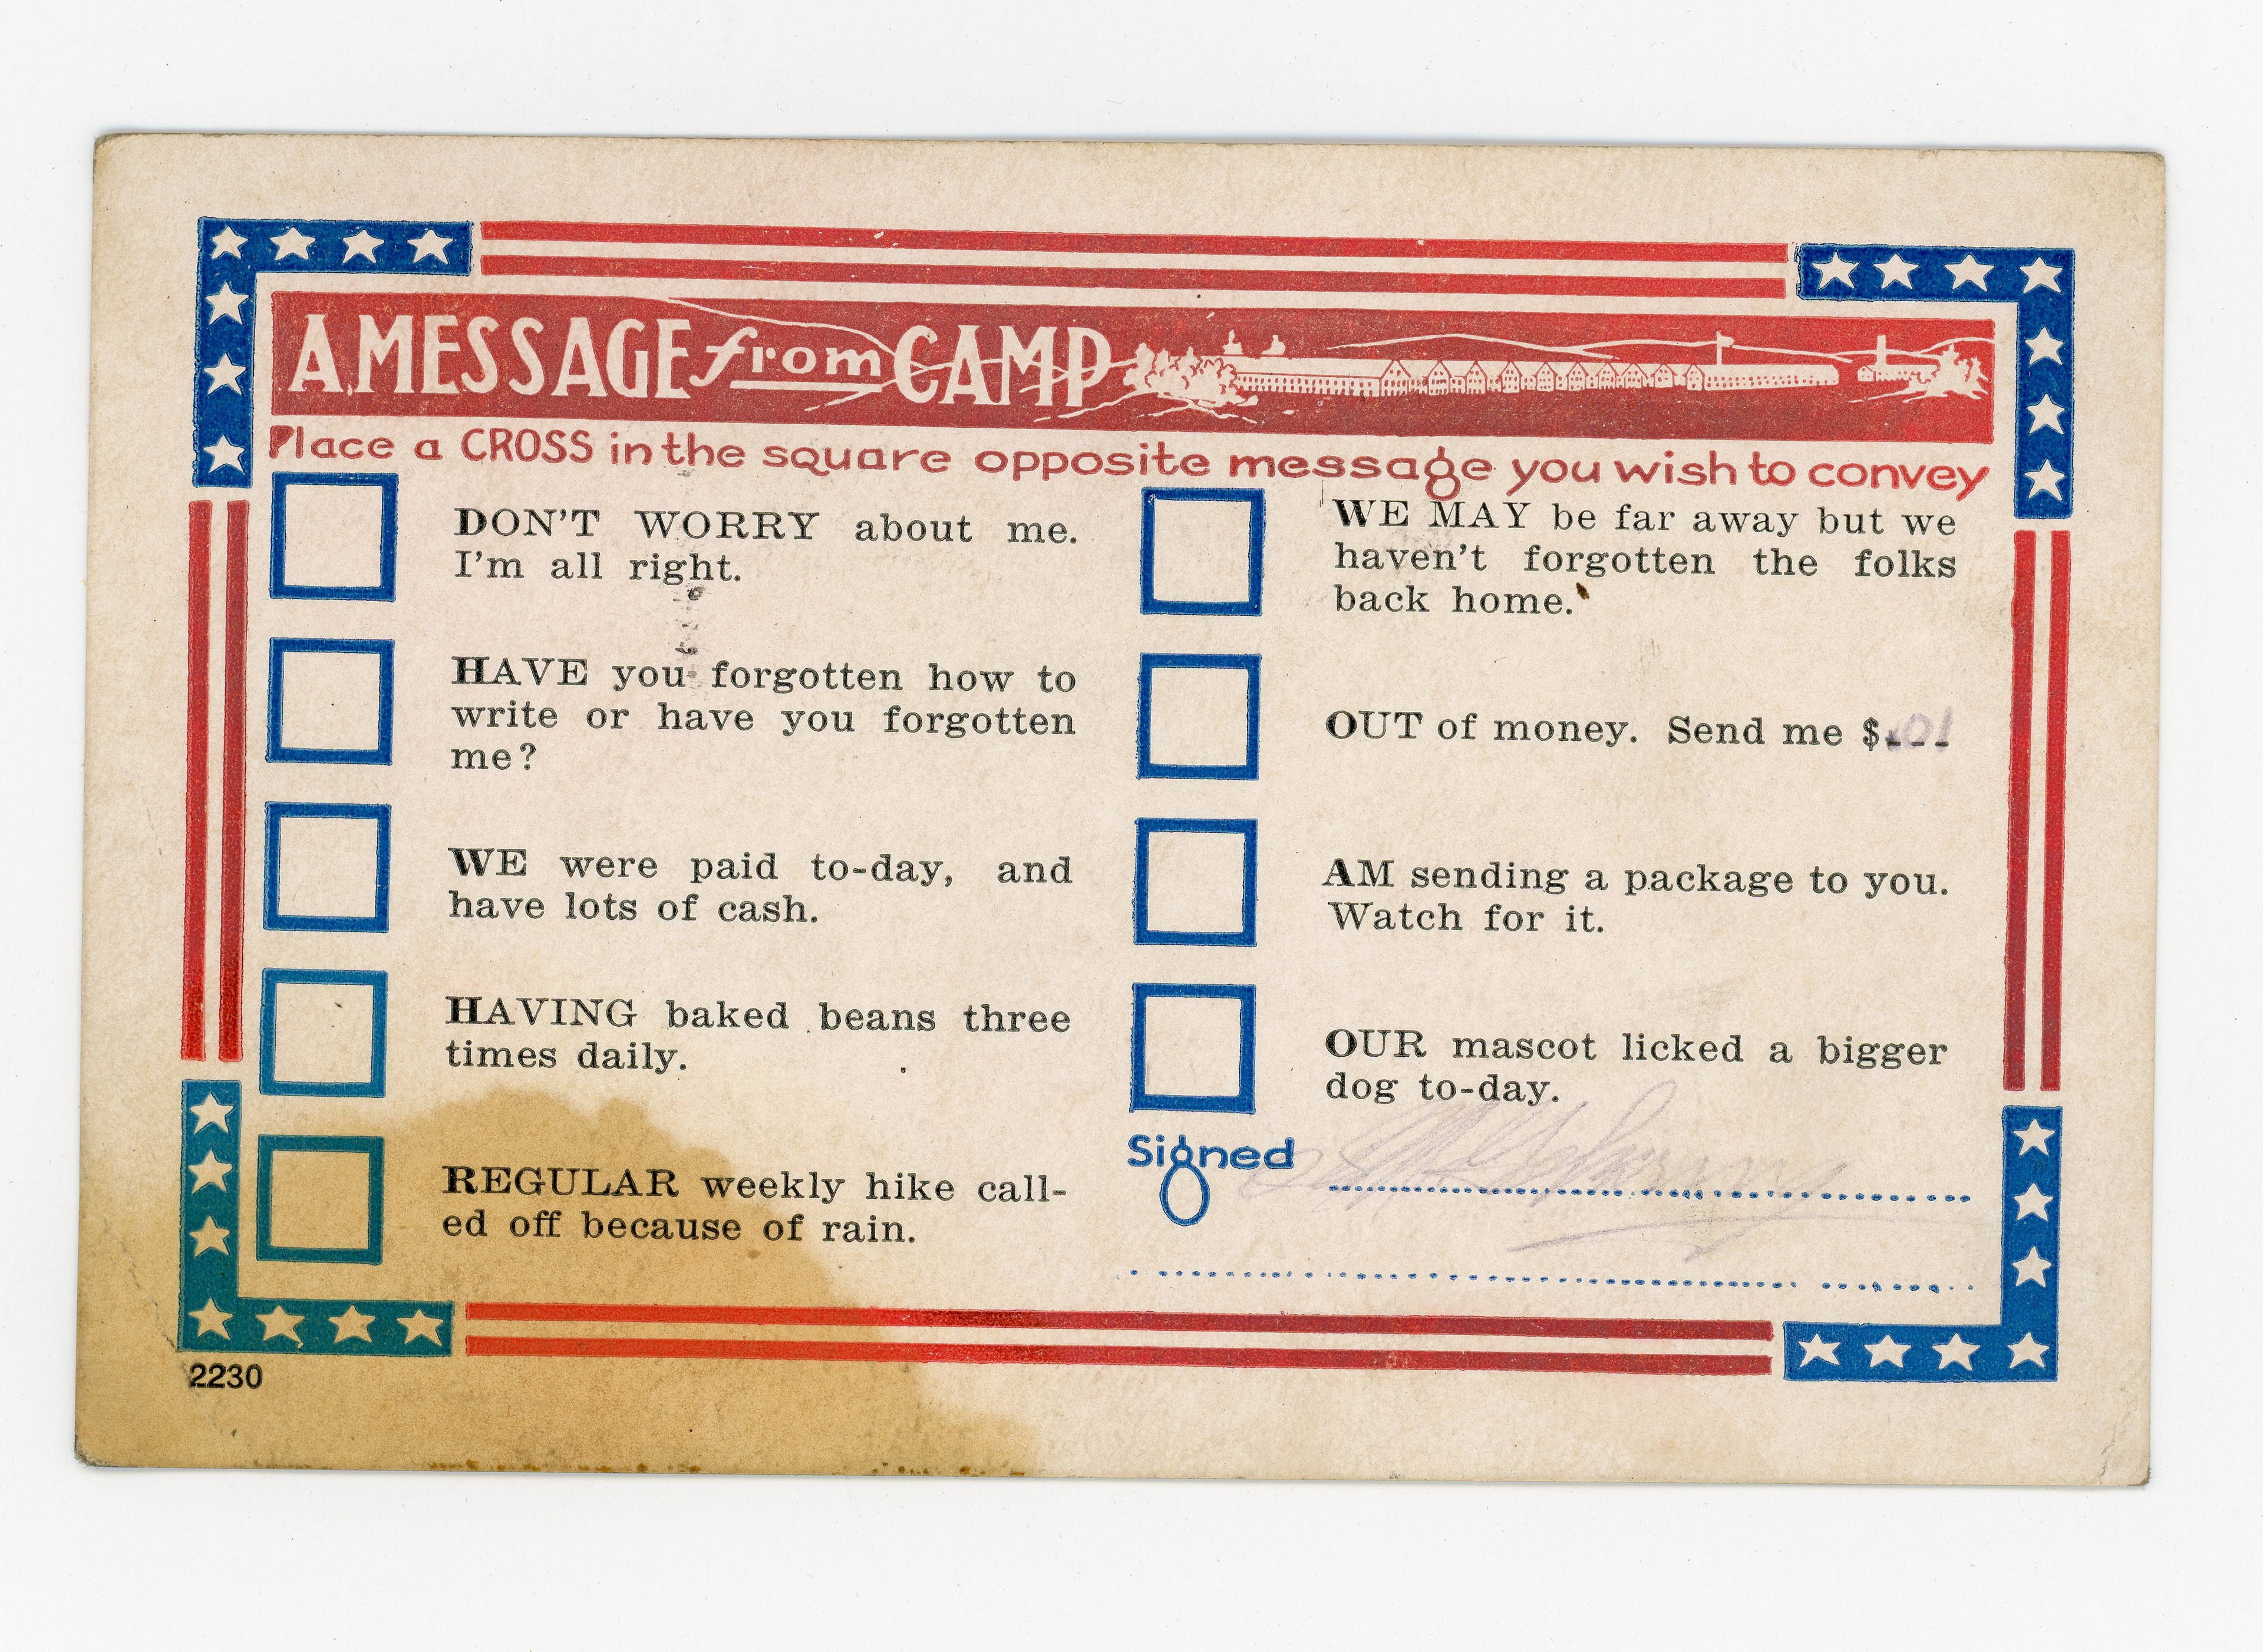 A MESSAGE from CAMP
Place a CROSS in the square opposite message you wish to convey
DON'T WORRY about me.
I'm all right.
HAVE you forgotten how to
write or have you forgotten
me?
WE were paid to-day, and
have lots of cash.
HAVING baked beans three
times daily.
REGULAR weekly hike call-
ed off because of rain.
WE MAY be far away but we
haven't forgotten the folks
back home.
OUT of money. Send me $.01
AM sending a package to you.
Watch for it.
OUR mascot licked a bigger
dog to-day.
Signed
2230